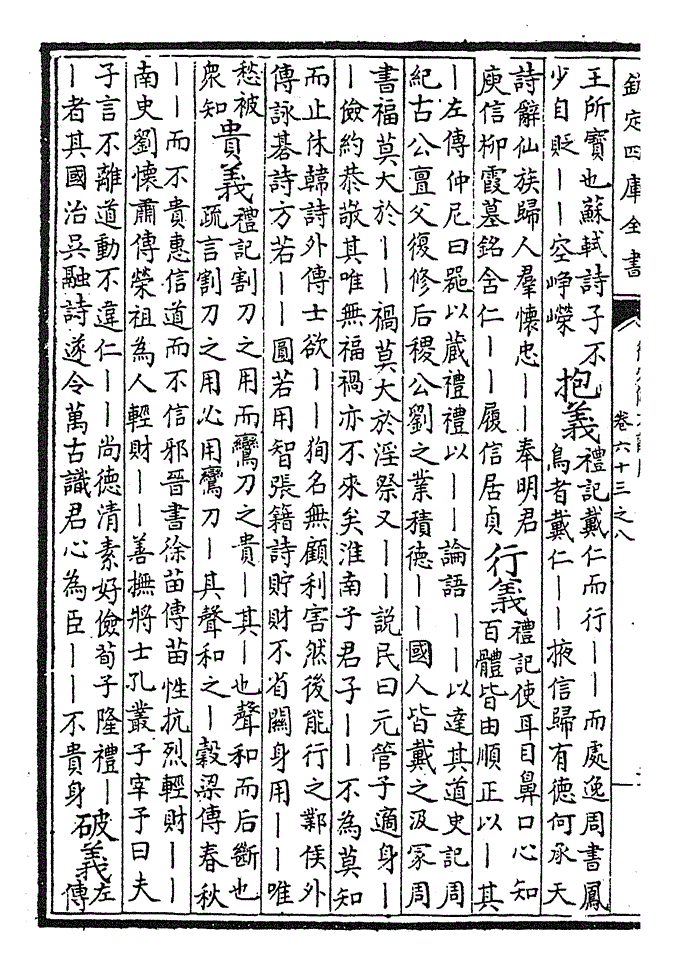 欽定四庫全書
卷六十三之八
王所寳也蘇軾詩子不
少自貶——空崢嶸
抱義
禮記戴仁而行——而處逸周書鳳
鳥者戴仁——掖信歸有德何承天
詩辭仙族歸人羣懷忠——奉明君
庾信柳霞墓銘舍仁——履信居貞
行義
禮記使耳目鼻口心知
百體皆由順正以—其
—左傳仲尼曰噐以藏禮禮以——論語——以達其道史記周
紀古公亶父復修后稷公劉之業積德——國人皆戴之汲冢周
書福莫大於——禍莫大於淫祭又——說民曰元管子適身—
—儉約恭敬其唯無福禍亦不來矣淮南子君子——不為莫知
而止休韓詩外傳士欲——狥名無顧利害然後能行之鄴侯外
傳詠碁詩方若——圓若用智張籍詩貯財不省關身用——唯
愁被
衆知
貴義
禮記割刀之用而鸞刀之貴—其—也聲和而后斷也
疏言割刀之用必用鸞刀—其聲和之—榖梁傳春秋
——而不貴惠信道而不信邪晉書徐苗傳苗性抗烈輕財——
南史劉懷肅傳榮祖為人輕財——善撫將士孔叢子宰予曰夫
子言不離道動不違仁——尚德清素好儉荀子隆禮—
—者其國治吳融詩遂令萬古識君心為臣——不貴身
破義
左
傳